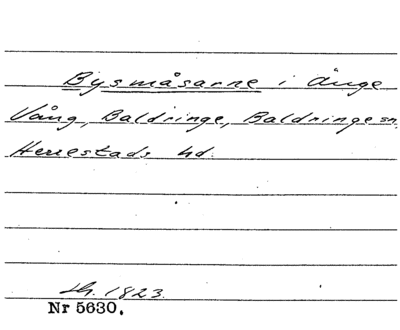 Bysmåsarne i Änge
Vång, Baldringe, Baldringe sn.
Herrestads hd.
sh. 1823.
Nr 5630.